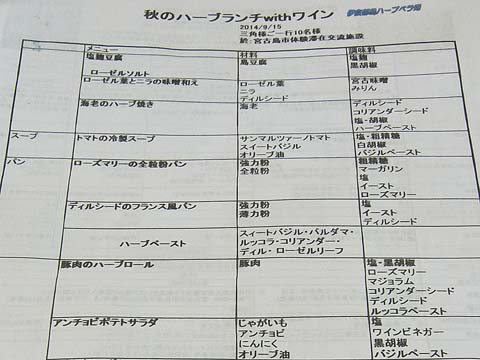 秋のハーブランチwithワイン
伊良部島ハーブベラ湯
2014/9/15
三角様ご一行10名様
於:宮古島市体験滞在交流施設
メニュー 材料 調味料
塩麹豆腐 島豆腐 塩麹
黒胡椒
ローゼルソルト
ローゼル葉とニラの味噌和え ローゼル葉 宮古味噌
ニラ みりん
ディルシード
海老のハーブ焼き 海老 ディルシード
コリアンダーシード
塩・胡椒
ハーブペースト
スープ トマトの冷製スープ サンマルツァーノトマト 塩・粗精糖
スイートバジル 白胡椒
オリーブ油 バジルペースト
パン ローズマリーの全粒粉パン 強力粉 粗精糖
全粒粉 マーガリン
塩
イースト
ローズマリー
ディルシードのフランス風パン 強力粉 塩
薄力粉 イースト
ディルシード
ハーブペースト スィートバジル・バルダマ・
ルッコラ・コリアンダー・
ディル・ローゼルリーフ
豚肉のハーブロール 豚肉 塩・黒胡椒
ローズマリー
マジョラム
コリアンダーシード
ディルシード
ルッコラペースト
アンチョビポテトサラダ じゃがいも 塩
アンチョビ ワインビネガー
にんにく 黒胡椒
オリーブ油 バジルペースト